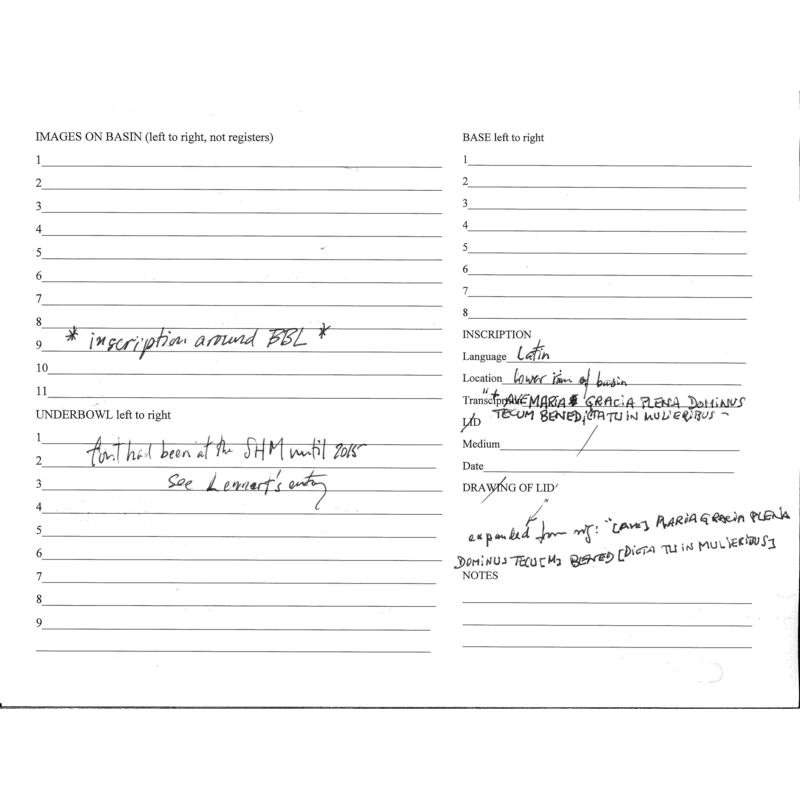 IMAGES ON BASIN (left to right, not registers)
1
2
3
4
5
6
7
8
9 * inscription around BBL *
10
11
UNDERBOWL left to right
1
2 font had been at the SHM until 2015
3 See Lennart's entry
4
5
6
7
8
9
BASE left to right
1
2
3
4
5
6
7
8
INSCRIPTION
Language Latin
Location lower rim of basin
Transcription "+ AVE MARIA GRACIA PLENA DOMINUS
TECUM BENEDICTA TU IN MULIERIBUS -
LID
Medium
Date
DRAWING OF LID
expanded from "[AVE] MARIA GRACIA PLENA
DOMINUS TECU[M] BENED[DICTA TU IN MULIERIBUS]
NOTES